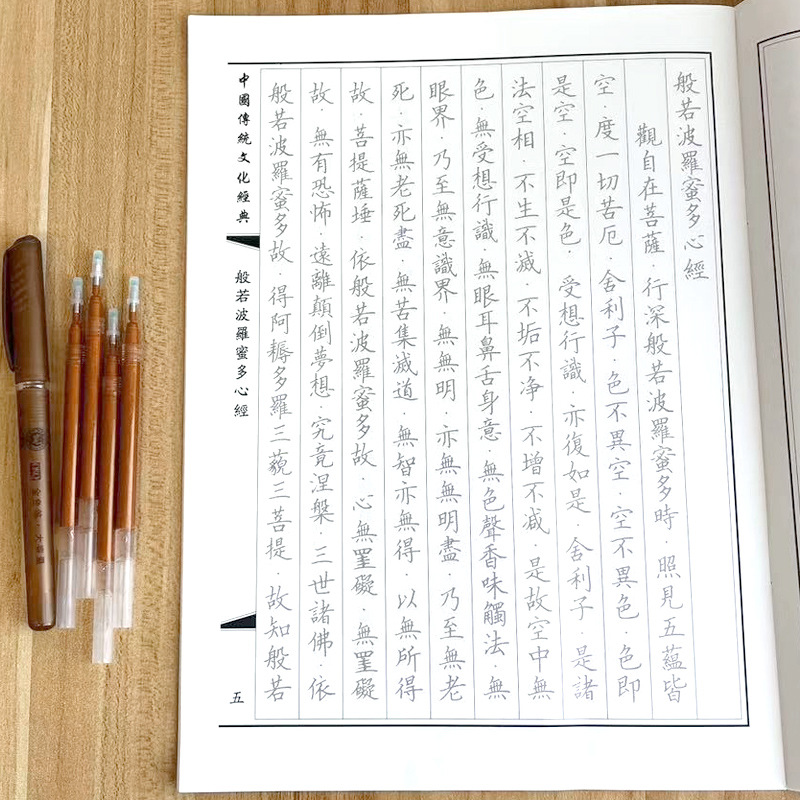 般若波羅蜜多心經
觀自在菩薩．行深般若波羅蜜多時．照見五蘊皆
空．度一切苦厄．舍利子．色不異空．空不異色．色即
是空．空即是色．受想行識．亦復如是．舍利子．是諸
法空相．不生不滅．不垢不净．不增不减．是故空中無
色．無受想行識．無眼耳鼻舌身意．無色聲香味觸法．無
眼界．乃至無意識界．無無明．亦無無明盡．乃至無老
死．亦無老死盡．無苦集滅道．無智亦無得．以無所得
故．菩提薩埵．依般若波羅蜜多故．心無罣礙．無罣礙
故．無有恐怖．遠離顛倒夢想．究竟涅槃．三世諸佛．依
般若波羅蜜多故．得阿耨多羅三藐三菩提．故知般若
中國傳統文化經典
般若波羅蜜多心經
五